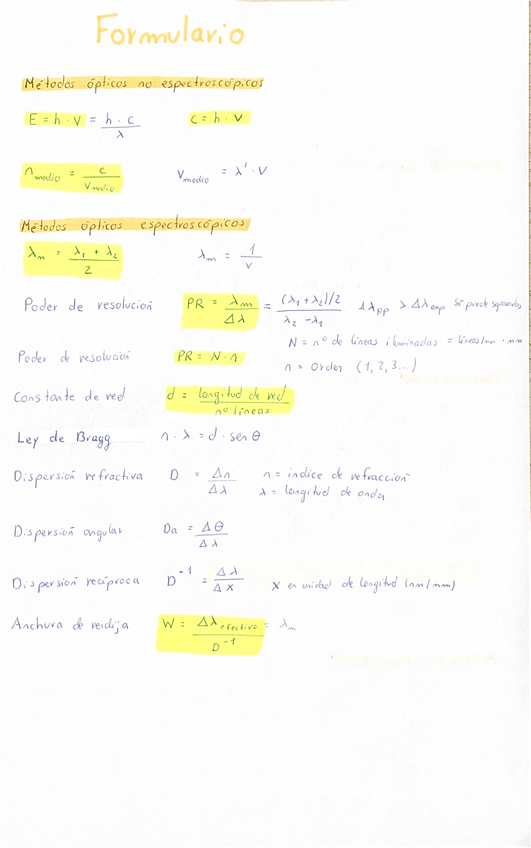 Formulario
Métodos ópticos no espectroscópicos
E = h · ν = h · c / λ    c = h · ν
n medio = c / V medio    V medio = λ' · ν
Métodos ópticos espectroscópicos
λm = λ1 + λ2 / 2    λm = 1 / ν
Poder de resolución    PR = λm / Δλ = (λ1 + λ2)/2 / λ2 - λ1    Δλ PP > Δλ exp Si puede separarlos
N = nº de líneas iluminadas = líneas/mm · mm
Poder de resolución    PR = N · n    n = orden (1, 2, 3...)
Constante de red    d = longitud de red / nº líneas
Ley de Bragg    n · λ = d · sen θ
Dispersión refractiva    D = Δn / Δλ    n = indice de refracción
λ = longitud de onda
Dispersión angular    Da = Δθ / Δλ
Dispersión recíproca    D⁻¹ = Δλ / Δx    X en unidad de longitud (nm/mm)
Anchura de rendija    W = Δλ efectivo / D⁻¹ = λm